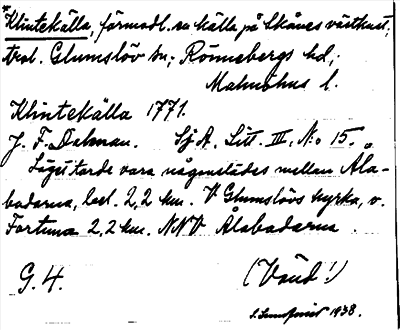 *Klintekälla, förmodl. en källa på Skånes västkust,
trol. Glumslöv sn; Rönnebergs hd;
Malmöhus l.
Klintekälla 1771.
J. F. Dalman. Sj A. Litt. III, No 15.
Läget torde vara någonstädes mellan Åla-
badarna, bel. 2,2 km. V Glumslövs kyrka, o.
Fortuna 2,2 km. NNV Ålabadarna.
G. 4. (Vänd!)
1938.